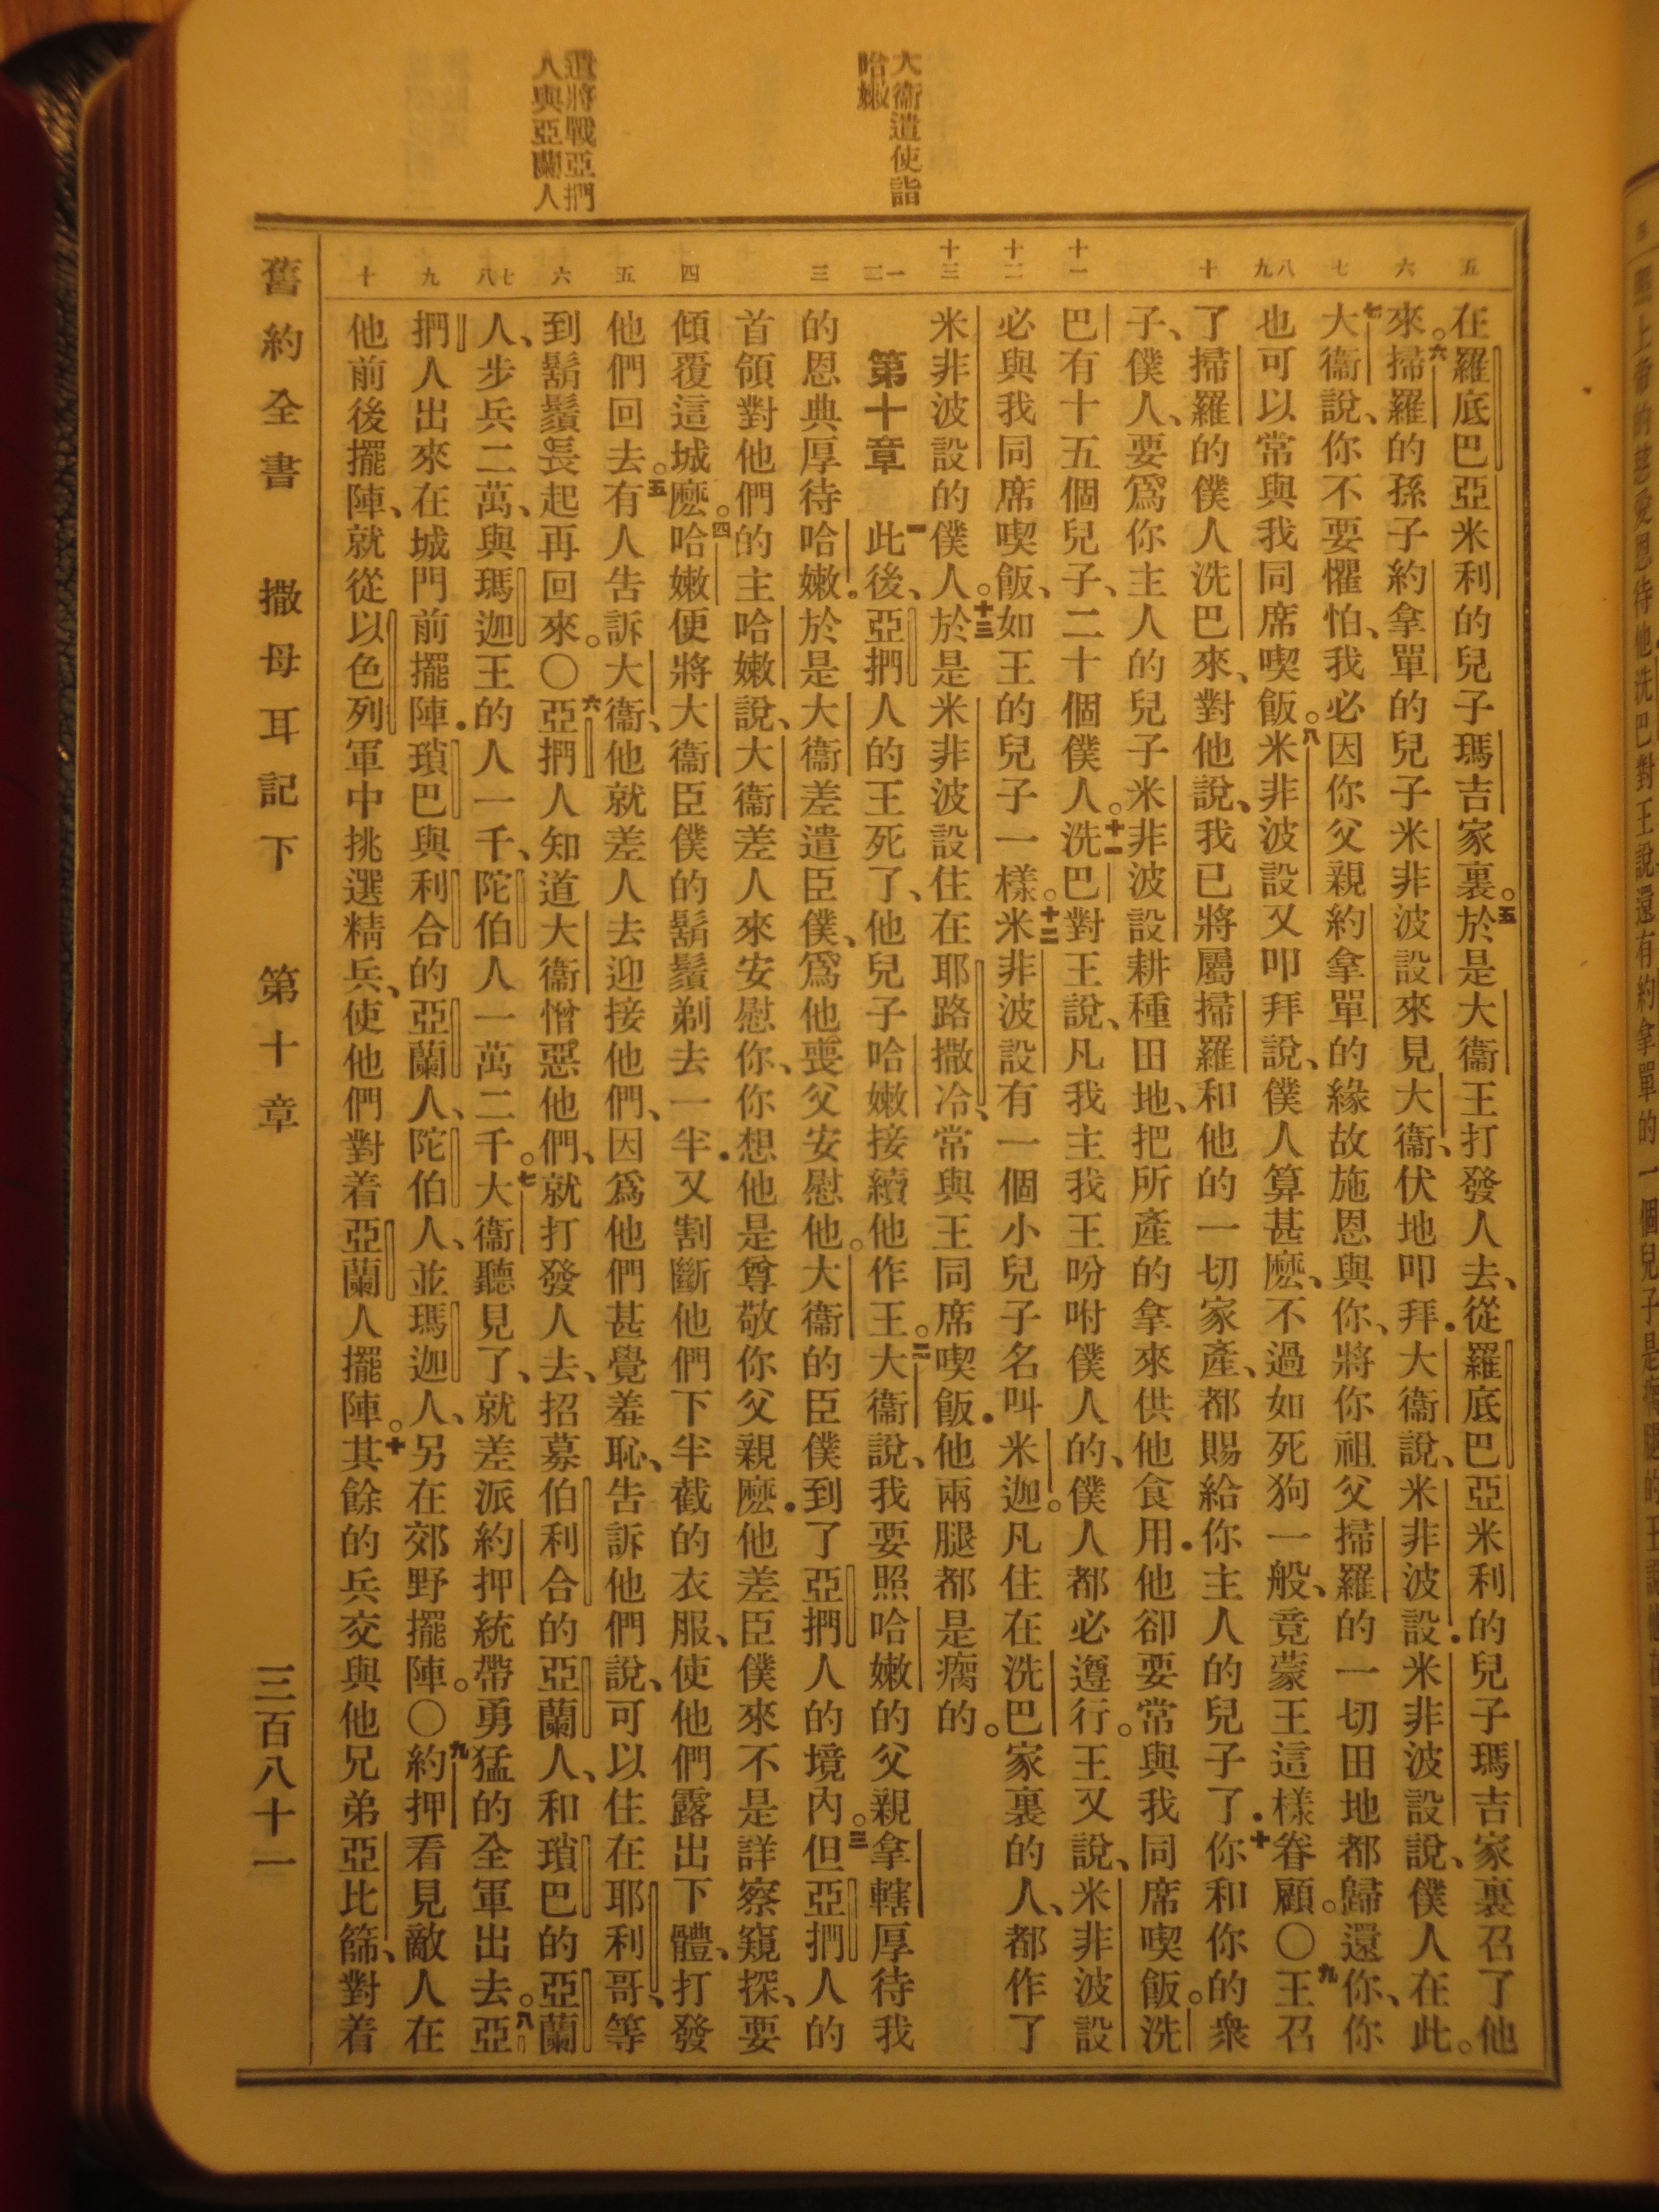 大衞遣使詣
哈嫩
遣將戰亞捫
人與亞蘭人
五
六
七
八九
十
十一
十二
十三
一二
三
四
五
六
七八
九
十
在羅底巴亞米利的兒子瑪吉家裏。五於是大衞王打發人去、從羅底巴亞米利的兒子瑪吉家裏召了他
來。六掃羅的孫子約拿單的兒子米非波設來見大衞、伏地叩拜．大衞說、米非波設．米非波設說、僕人在此。
七大衞說、你不要懼怕、我必因你父親約拿單的緣故施恩與你、將你祖父掃羅的一切田地都歸還你、你
也可以常與我同席喫飯。八米非波設又叩拜說、僕人算甚麽、不過如死狗一般、竟蒙王這樣眷顧。○九王召
了掃羅的僕人洗巴來、對他說、我已將屬掃羅和他的一切家產、都賜給你主人的兒子了．十你和你的衆
子、僕人、要爲你主人的兒子米非波設耕種田地、把所產的拿來供他食用．他卻要常與我同席喫飯。洗
巴有十五個兒子、二十個僕人。十一洗巴對王說、凡我主我王吩咐僕人的、僕人都必遵行。王又說、米非波設
必與我同席喫飯、如王的兒子一樣。十二米非波設有一個小兒子名叫米迦。凡住在洗巴家裏的人、都作了
米非波設的僕人。十三於是米非波設住在耶路撒冷、常與王同席喫飯．他兩腿都是瘸的。
第十章　一此後、亞捫人的王死了、他兒子哈嫩接續他作王。二大衞說、我要照哈嫩的父親拿轄厚待我
的恩典厚待哈嫩．於是大衞差遣臣僕、爲他喪父安慰他。大衞的臣僕到了亞捫人的境內。三但亞捫人的
首領對他們的主哈嫩說、大衞差人來安慰你、你想他是尊敬你父親麽．他差臣僕來不是詳察窺探、要
傾覆這城麽。四哈嫩便將大衞臣僕的鬍鬚剃去一半．又割斷他們下半截的衣服、使他們露出下體、打發
他們回去。五有人告訴大衞、他就差人去迎接他們、因爲他們甚覺羞恥、告訴他們說、可以住在耶利哥、等
到鬍鬚長起再回來。○六亞捫人知道大衞憎惡他們、就打發人去、招募伯利合的亞蘭人、和瑣巴的亞蘭
人、步兵二萬、與瑪迦王的人一千、陀伯人一萬二千。七大衞聽見了、就差派約押統帶勇猛的全軍出去。八亞
捫人出來在城門前擺陣．瑣巴與利合的亞蘭人、陀伯人、並瑪迦人、另在郊野擺陣。○九約押看見敵人在
他前後擺陣、就從以色列軍中挑選精兵、使他們對着亞蘭人擺陣。十其餘的兵交與他兄弟亞比篩、對着
舊約全書　撒母耳記下　第十章　三百八十一